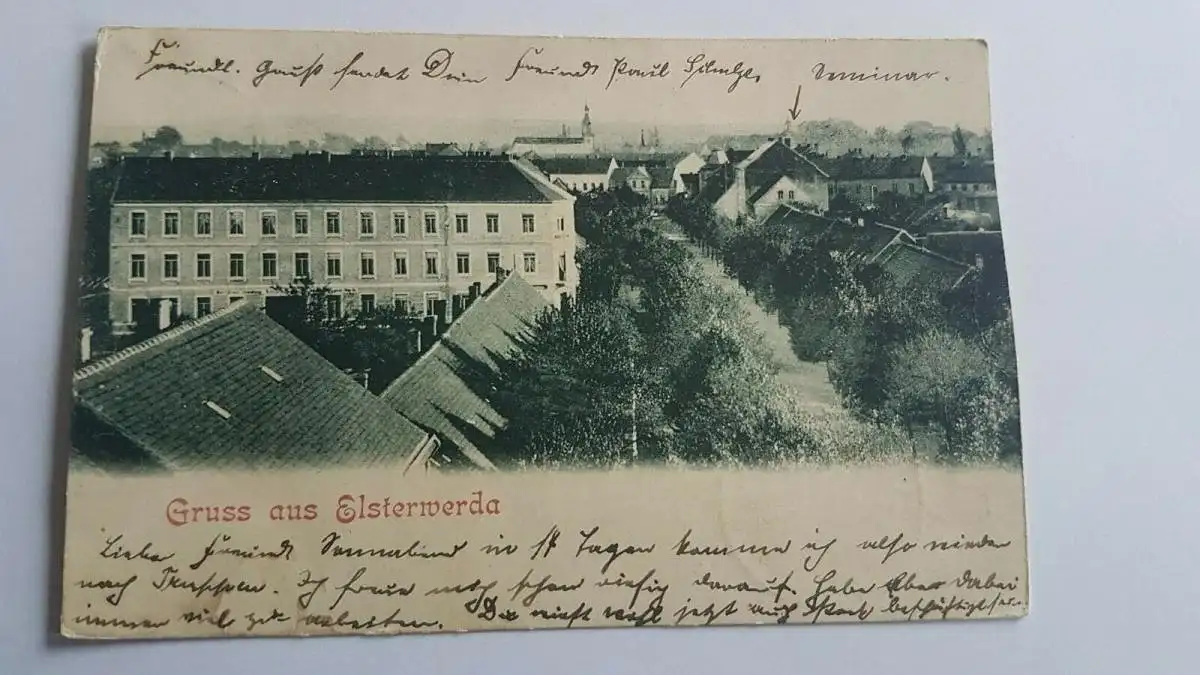 Freundl. Gruß sendet Dein Freund Paul Schulze. Seminar.
Gruss aus Elsterwerda
Lieber Freund Sonnabend in 14 Tagen komme ich also wieder
nach . Ich freue mich schon riesig darauf. Habe aber dabei
immer viel zu arbeiten. Du wirst wohl jetzt auch stark beschäftigt sein